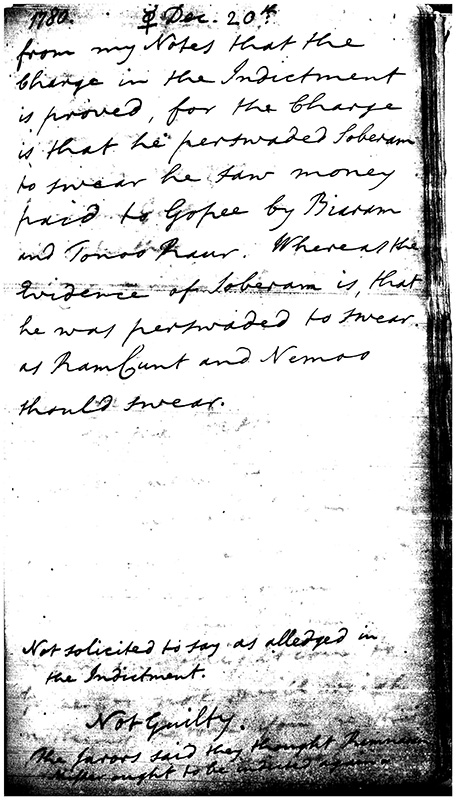 1780. ☿ Dec. 20th
from my Notes that the
Charge in the Indictment
is proved, for the Charge
is that he perswaded Soberam
to swear he saw money
paid to Gopee by Biaram
and Tonoo Raur. Whereas the
Evidence of Soberam is, that
he was perswaded to swear
as RamCunt and Nemoo
should swear.
Not solicited to say as alledged in
the Indictment.
Not Guilty.
The Jurors said they thought
ought to be indicted again